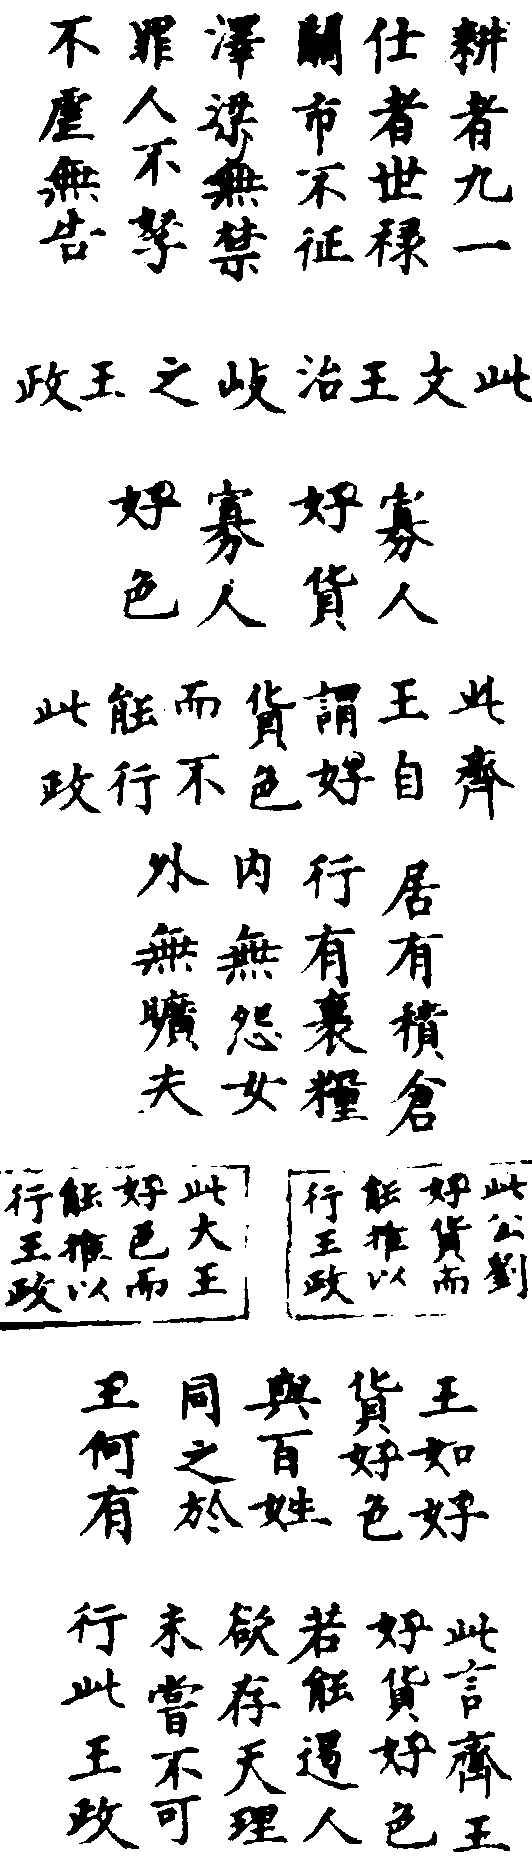 耕者九一
仕者世禄
關市不征
澤梁無禁
罪人不孥
不虐無告
此文王治岐之王政
寡人
好貨
寡人
好色
此齊
王自
謂好
貨色
而不
能行
此政
居有積倉
行有裹糧
内無怨女
外無曠夫
此公劉
好貨而
能推以
行王政
此大王
好色而
能推以
行王政
王如好
貨好色
與百姓
同之於
王何有
此言齊王
好貨好色
若能遏人
欲存天理
未嘗不可
行此王政